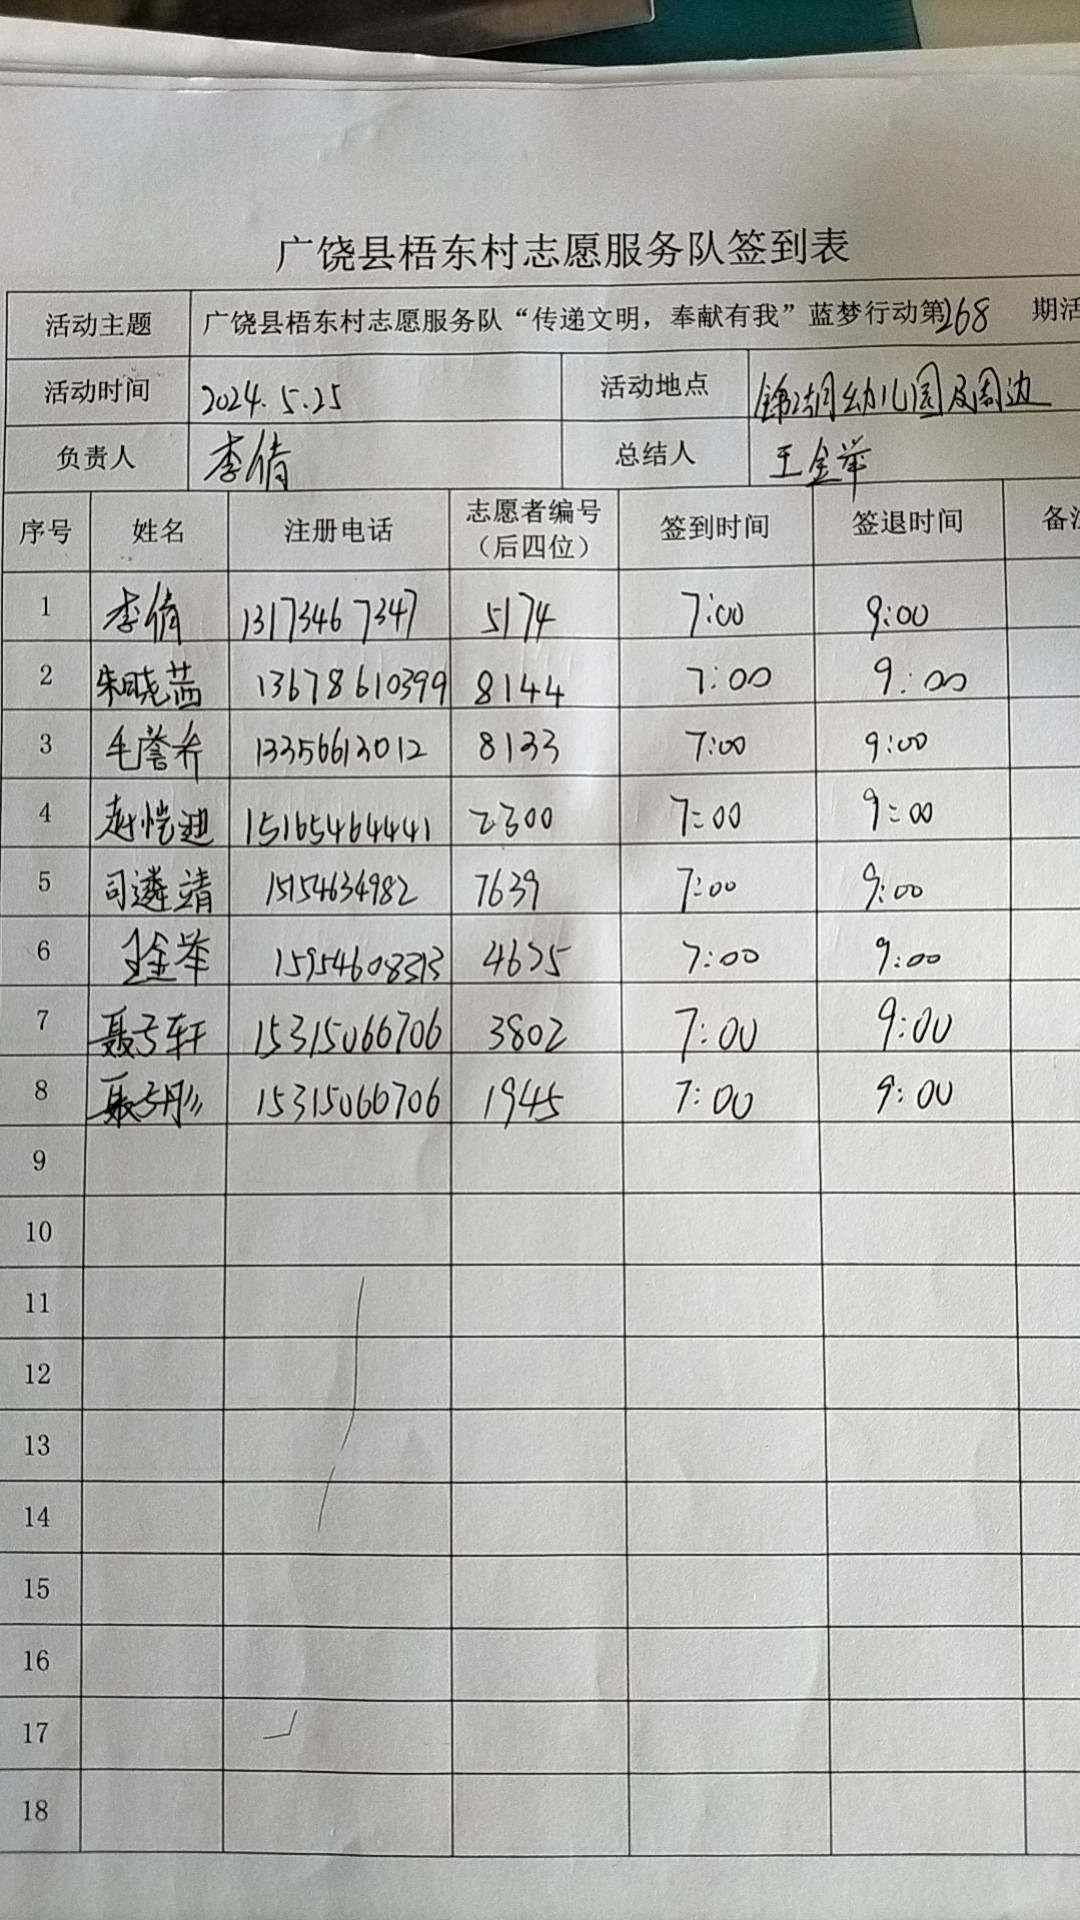 广饶县梧东村志愿服务队签到表
活动主题 广饶县梧东村志愿服务队“传递文明，奉献有我”蓝梦行动第268 期活
活动时间 2024.5.25 活动地点 锦湖幼儿园及周边
负责人 李倩 总结人 王金举
序号 姓名 注册电话 志愿者编号（后四位） 签到时间 签退时间 备注
1 李倩 13173467347 5174 7:00 9:00
2 朱晓茜 13678610399 8144 7:00 9:00
3 毛誉乔 13356613012 8133 7:00 9:00
4 赵恺迪 15165464441 2300 7:00 9:00
5 司遴靖 15154634982 7639 7:00 9:00
6 王金举 4625 7:00 9:00
7 聂弓轩 15315066706 3802 7:00 9:00
8 15315066706 1945 7:00 9:00
9
10
11
12
13
14
15
16
17
18